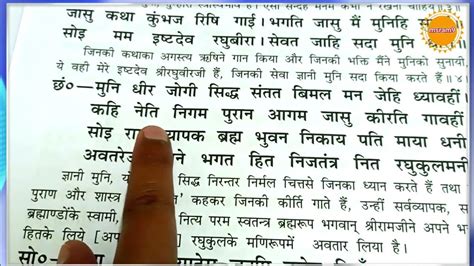 जासु कथा कुंभज रिषि गाई। भगति जासु मैं मुनिहि
सोइ मम इष्टदेव रघुबीरा। सेवत जाहि सदा मुनि
जिनकी कथाका अगस्त्य ऋषिने गान किया और जिनकी भक्ति मैंने मुनिको सुनायी,
ये वही मेरे इष्टदेव श्रीरघुवीरजी हैं, जिनकी सेवा ज्ञानी मुनि सदा किया करते हैं॥४
छं०—मुनि धीर जोगी सिद्ध संतत बिमल मन जेहि ध्यावहीं।
कहि नेति निगम पुरान आगम जासु कीरति गावहीं
सोइ ब्यापक ब्रह्म भुवन निकाय पति माया धनी
अवतरेउ भगत हित निजतंत्र नित रघुकुलमनी
ज्ञानी मुनि, सिद्ध निरन्तर निर्मल चित्तसे जिनका ध्यान करते हैं तथा
पुराण और शास्त्र कहकर जिनकी कीर्ति गाते हैं, उन्हीं सर्वव्यापक,
ब्रह्माण्डोंके स्वामी, नित्य परम स्वतन्त्र ब्रह्मरूप भगवान् श्रीरामजीने अपने
हितके लिये रघुकुलके मणिरूपमें अवतार लिया है।
सो०—